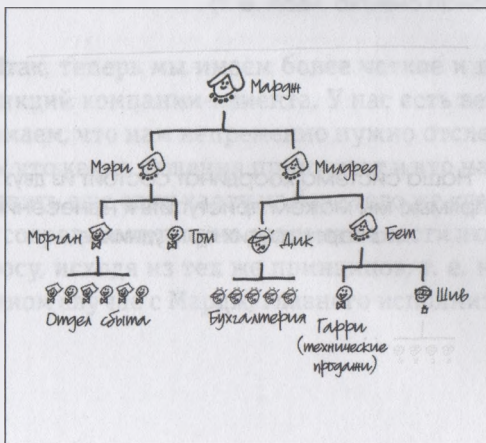 Мардж
Мэри
Милдред
Морган
Том
Дик
Бет
Отдел сбыта
Бухгалтерия
Гарри
(технические
продажи)
Шив